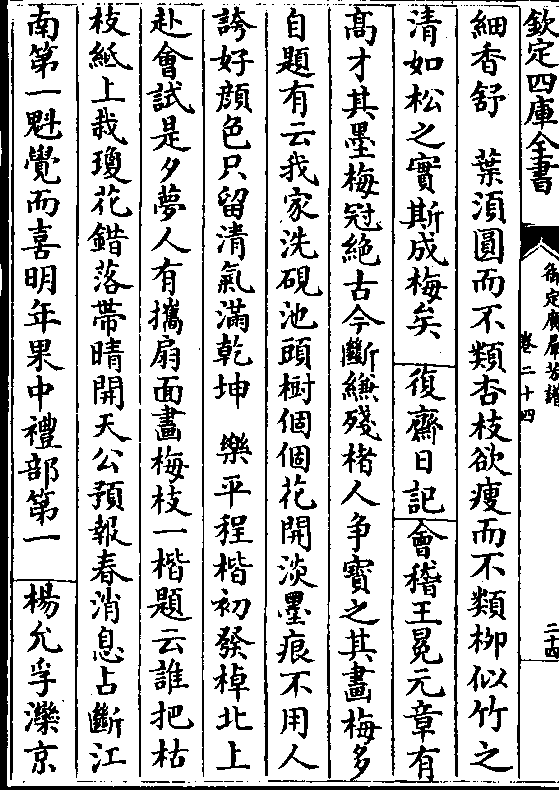 欽定四庫全書
御定廣羣芳譜
卷二十四
二十四
細香舒　葉湏圓而不類杏枝欲瘦而不類栁似竹之
清如松之實斯成梅矣　復齋日記　會稽王冕元章有
髙才其墨梅冠絶古今斷縑殘楮人争寳之其畫梅多
自題有云我家洗硯池頭樹個個花開淡墨痕不用人
誇好顔色只留清氣滿乾坤　樂平程楷初發棹北上
赴會試是夕夢人有攜扇面畫梅枝一楷題云誰把枯
枝紙上栽瓊花錯落帶晴開天公預報春消息占斷江
南第一魁覺而喜明年果中禮部第一　楊允孚灤京